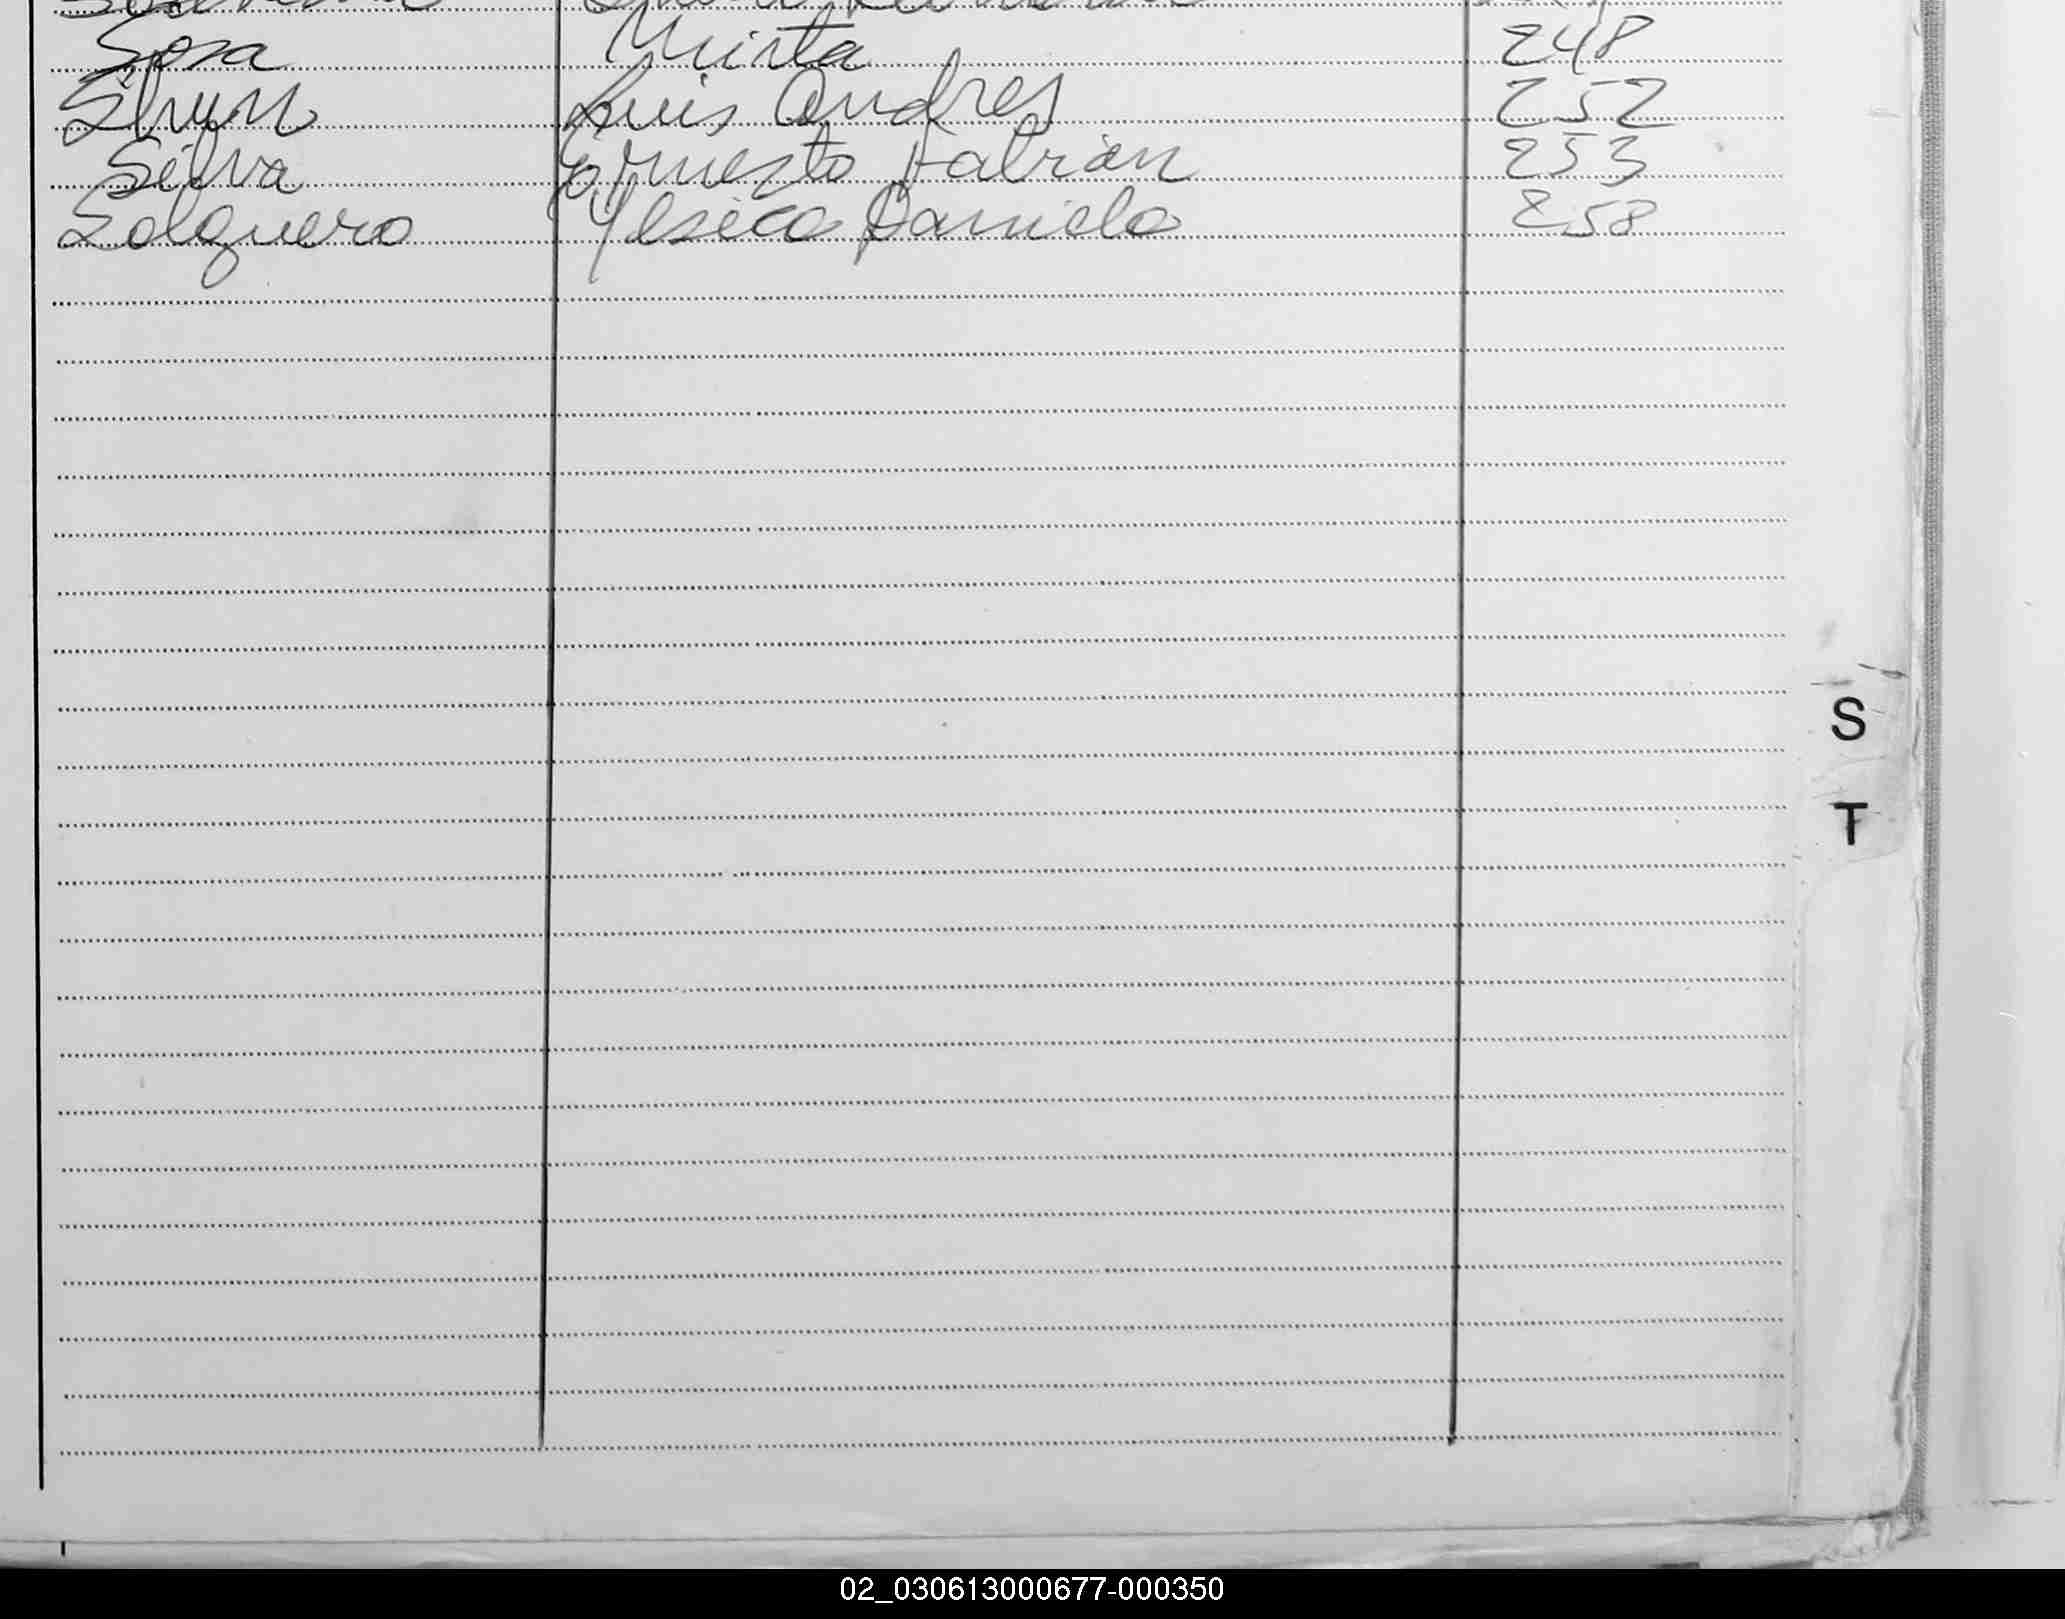 Sosa Mirta 248
Luis Andres 252
Silva Ernesto Fabian 253
Salguero Yesica Daniela 258
S
T
02_030613000677-000350